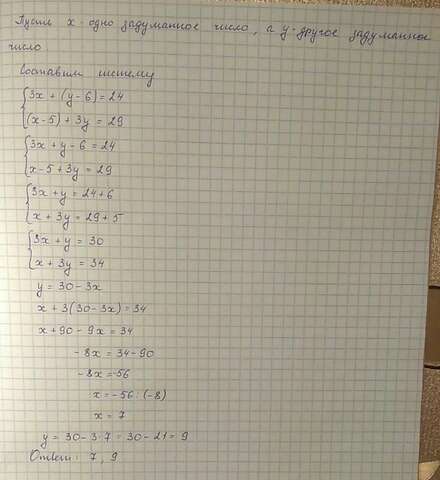 Пусть x - одно задуманное число, а y - другое задуманное
число.
Составим систему
{3x + (y - 6) = 24
{(x - 5) + 3y = 29
{3x + y - 6 = 24
{x - 5 + 3y = 29
{3x + y = 24 + 6
{x + 3y = 29 + 5
{3x + y = 30
{x + 3y = 34
y = 30 - 3x
x + 3(30 - 3x) = 34
x + 90 - 9x = 34
-8x = 34 - 90
-8x = -56
x = -56 : (-8)
x = 7
y = 30 - 3·7 = 30 - 21 = 9
Ответ: 7, 9